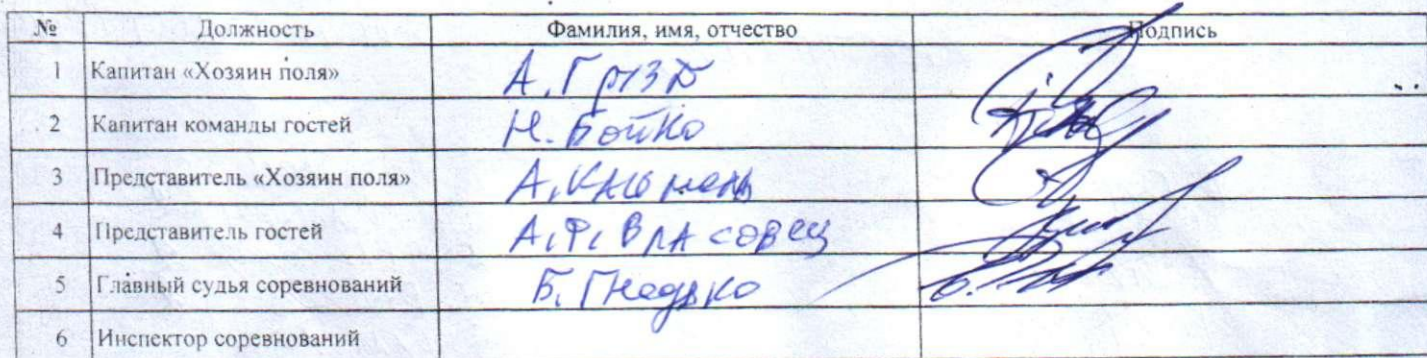 № Должность Фамилия, имя, отчество Подпись
1 Капитан «Хозяин поля» А.
2 Капитан команды гостей Н. Бойко
3 Представитель «Хозяин поля» А.
4 Представитель гостей А.Ф. Власовец
5 Главный судья соревнований Б. Гнедько
6 Инспектор соревнований